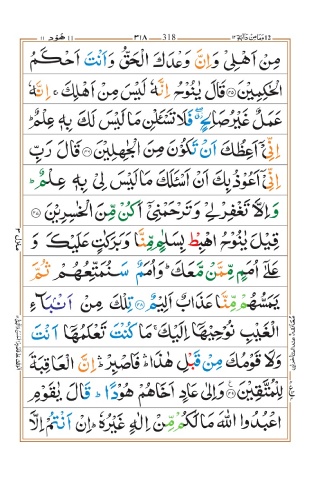 ۱۱ هُوْد ۱۱ ۳۱۸ 318 وَمَا مِنْ دَآبَّةٍ ۱۲
مِنْ اَهْلِیْ وَاِنَّ وَعْدَكَ الْحَقُّ وَاَنْتَ اَحْكَمُ
الْحٰكِمِیْنَ ۝۴۵ قَالَ یٰنُوْحُ اِنَّهٗ لَیْسَ مِنْ اَهْلِكَ ۚ اِنَّهٗ
عَمَلٌ غَیْرُ صَالِحٍ ۖ فَلَا تَسْـَٔلْنِ مَا لَیْسَ لَكَ بِهٖ عِلْمٌ ؕ
اِنِّیْۤ اَعِظُكَ اَنْ تَكُوْنَ مِنَ الْجٰهِلِیْنَ ۝۴۶ قَالَ رَبِّ
اِنِّیْۤ اَعُوْذُ بِكَ اَنْ اَسْـَٔلَكَ مَا لَیْسَ لِیْ بِهٖ عِلْمٌ ؕ
وَاِلَّا تَغْفِرْ لِیْ وَتَرْحَمْنِیْۤ اَكُنْ مِّنَ الْخٰسِرِیْنَ ۝۴۷
قِیْلَ یٰنُوْحُ اهْبِطْ بِسَلٰمٍ مِّنَّا وَبَرَكٰتٍ عَلَیْكَ وَ
عَلٰۤی اُمَمٍ مِّمَّنْ مَّعَكَ ؕ وَاُمَمٌ سَنُمَتِّعُهُمْ ثُمَّ
یَمَسُّهُمْ مِّنَّا عَذَابٌ اَلِیْمٌ ۝۴۸ تِلْكَ مِنْ اَنْۢبَآءِ
الْغَیْبِ نُوْحِیْهَاۤ اِلَیْكَ ۚ مَا كُنْتَ تَعْلَمُهَاۤ اَنْتَ
وَلَا قَوْمُكَ مِنْ قَبْلِ هٰذَا ؕۛ فَاصْبِرْ ؕۛ اِنَّ الْعَاقِبَةَ
لِلْمُتَّقِیْنَ ۝۴۹ وَاِلٰی عَادٍ اَخَاهُمْ هُوْدًا ؕ قَالَ یٰقَوْمِ
اعْبُدُوا اللّٰهَ مَا لَكُمْ مِّنْ اِلٰهٍ غَیْرُهٗ ؕ اِنْ اَنْتُمْ اِلَّا